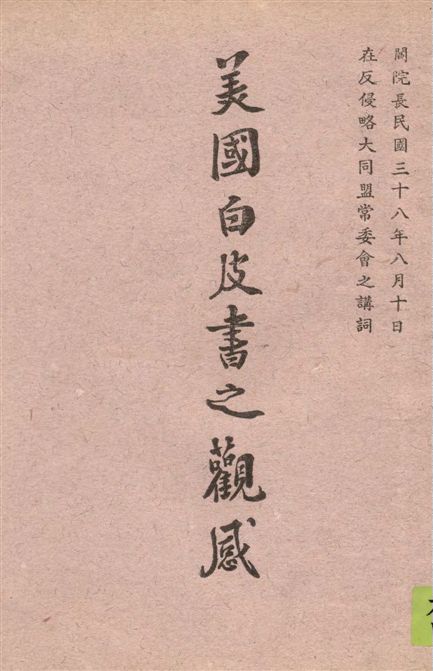 閻院長民國三十八年八月十日
在反侵略大同盟常委會之講詞
美國白皮書之觀感